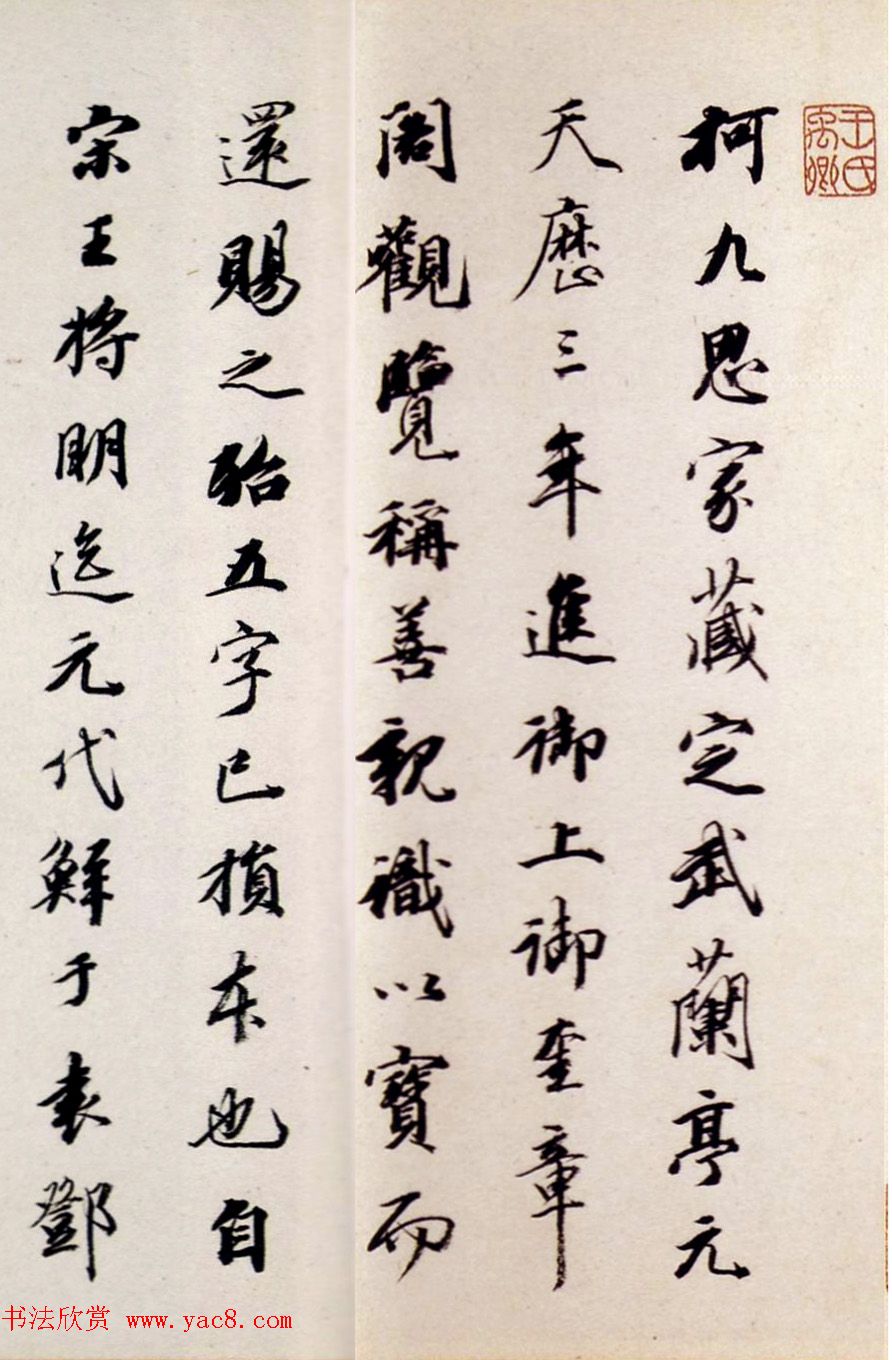 王氏禹卿
柯九思家藏定武蘭亭元
天歷三年進御上御奎章
閣觀覽稱善親識以寶而
還賜之殆五字已損本也自
宋王將明迄元代鮮于袁鄧
书法欣赏 www.yac8.com